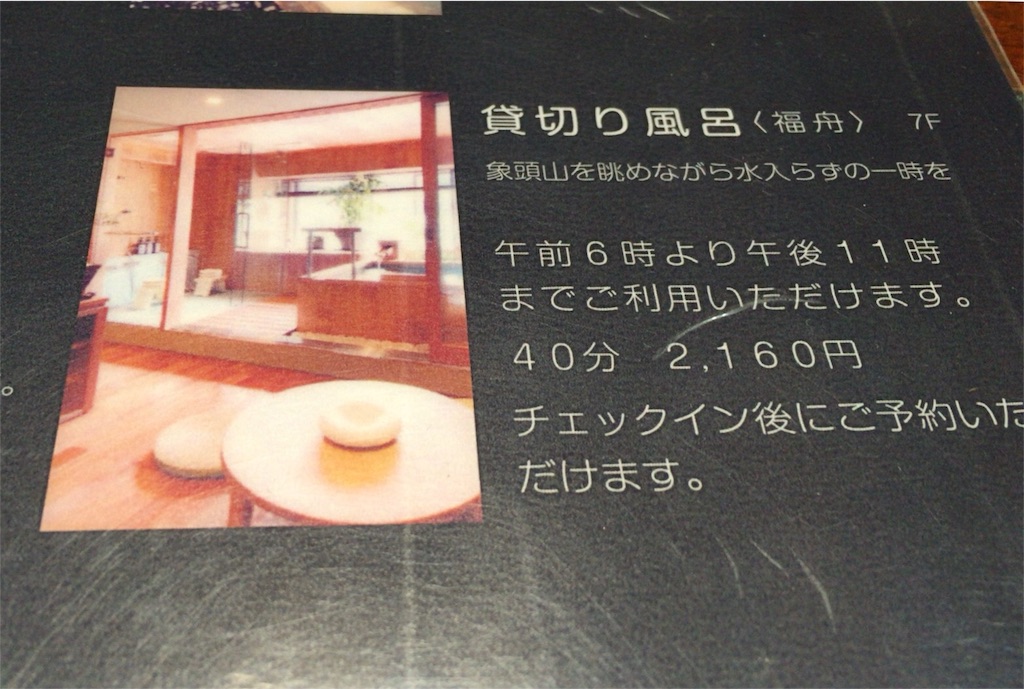 貸切り風呂〈福舟〉 7F
象頭山を眺めながら水入らずの一時を
午前6時より午後11時
までご利用いただけます。
40分 2,160円
チェックイン後にご予約いた
だけます。
。